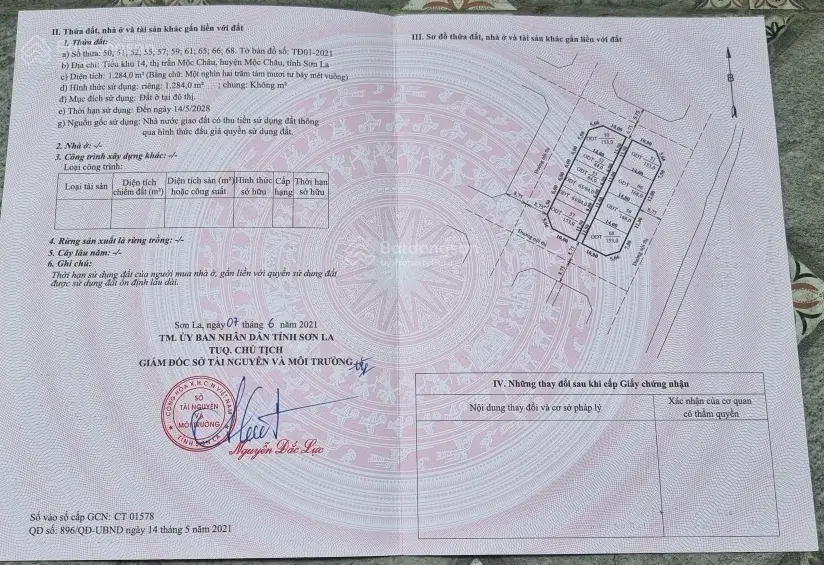 II. Thửa đất, nhà ở và tài sản khác gắn liền với đất
1. Thửa đất:
a) Số thửa: 50, 51, 52, 55, 57, 59, 61, 65, 66, 68. Tờ bản đồ số: TĐ01-2021
b) Địa chỉ: Tiểu khu 14, thị trấn Mộc Châu, huyện Mộc Châu, tỉnh Sơn La
c) Diện tích: 1.284,0 m² (Bằng chữ: Một nghìn hai trăm tám mươi tư bảy mét vuông)
d) Hình thức sử dụng: riêng: 1.284,0 m² ; chung: Không m²
đ) Mục đích sử dụng: Đất ở tại đô thị.
e) Thời hạn sử dụng: Đến ngày 14/5/2028
g) Nguồn gốc sử dụng: Nhà nước giao đất có thu tiền sử dụng đất thông
qua hình thức đấu giá quyền sử dụng đất.
2. Nhà ở: -/-
3. Công trình xây dựng khác: -/-
Loại công trình:
Loại tài sản Diện tích chiếm đất (m²) Diện tích sàn (m²) hoặc công suất Hình thức sở hữu Cấp hạng Thời hạn sở hữu
4. Rừng sản xuất là rừng trồng: -/-
5. Cây lâu năm: -/-
6. Ghi chú:
Thời hạn sử dụng đất của người mua nhà ở, gắn liền với quyền sử dụng đất
được sử dụng đất ổn định lâu dài.
Sơn La, ngày 07 tháng 6 năm 2021
TM. ỦY BAN NHÂN DÂN TỈNH SƠN LA
TUQ. CHỦ TỊCH
GIÁM ĐỐC SỞ TÀI NGUYÊN VÀ MÔI TRƯỜNG
CỘNG HÒA X.H.C.N VIỆT NAM
SỞ
TÀI NGUYÊN
MÔI TRƯỜNG
TỈNH SƠN LA
Nguyễn Đắc Lực
Số vào sổ cấp GCN: CT 01578
QĐ số: 896/QĐ-UBND ngày 14 tháng 5 năm 2021
III. Sơ đồ thửa đất, nhà ở và tài sản khác gắn liền với đất
B
Đường nội thị
Đường nội thị
Đường nội thị
Batdongsan
IV. Những thay đổi sau khi cấp Giấy chứng nhận
Nội dung thay đổi và cơ sở pháp lý
Xác nhận của cơ quan
có thẩm quyền